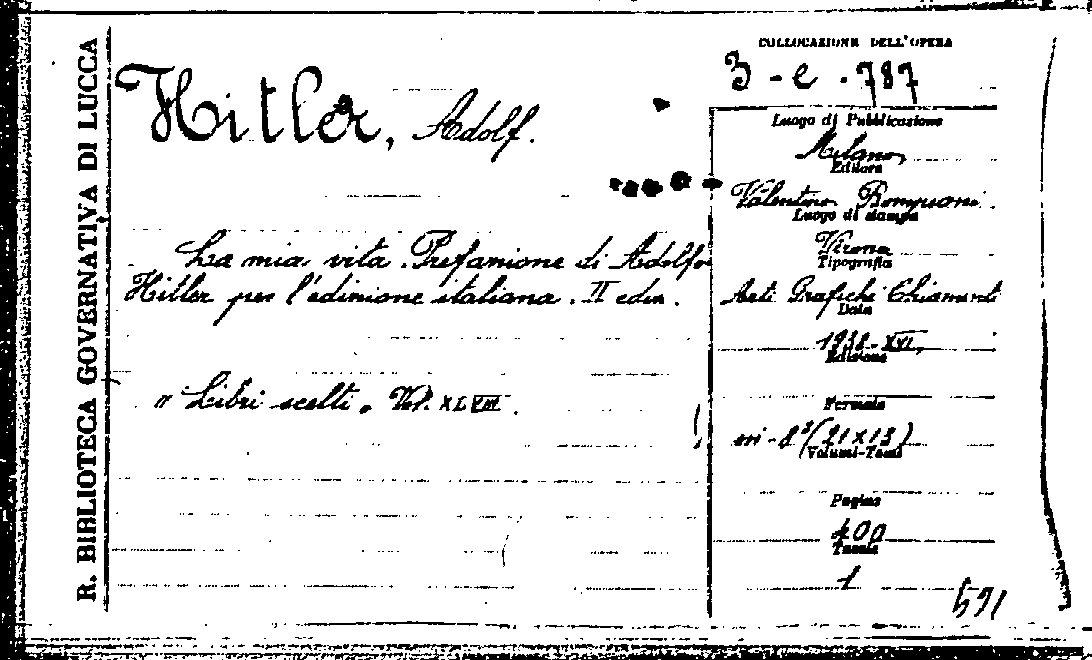 R. BIBLIOTECA GOVERNATIVA DI LUCCA
Hitler, Adolf.
La mia vita. Prefazione di Adolfo
Hitler per l'edizione italiana. II ediz.
"Libri scelti" Vol. XLVIII.
COLLOCAZIONE DELL'OPERA
3-e.787
Luogo di Pubblicazione
Milano,
Editore
Valentino Bompiani.
Luogo di stampa
Verona
Tipografia
Arti Grafiche Chiamenti
Data
1938-XVI,
Edizione
Formato
in-8°(21x13)
Volumi-Tomi
Pagine
400
Tavole
1
591